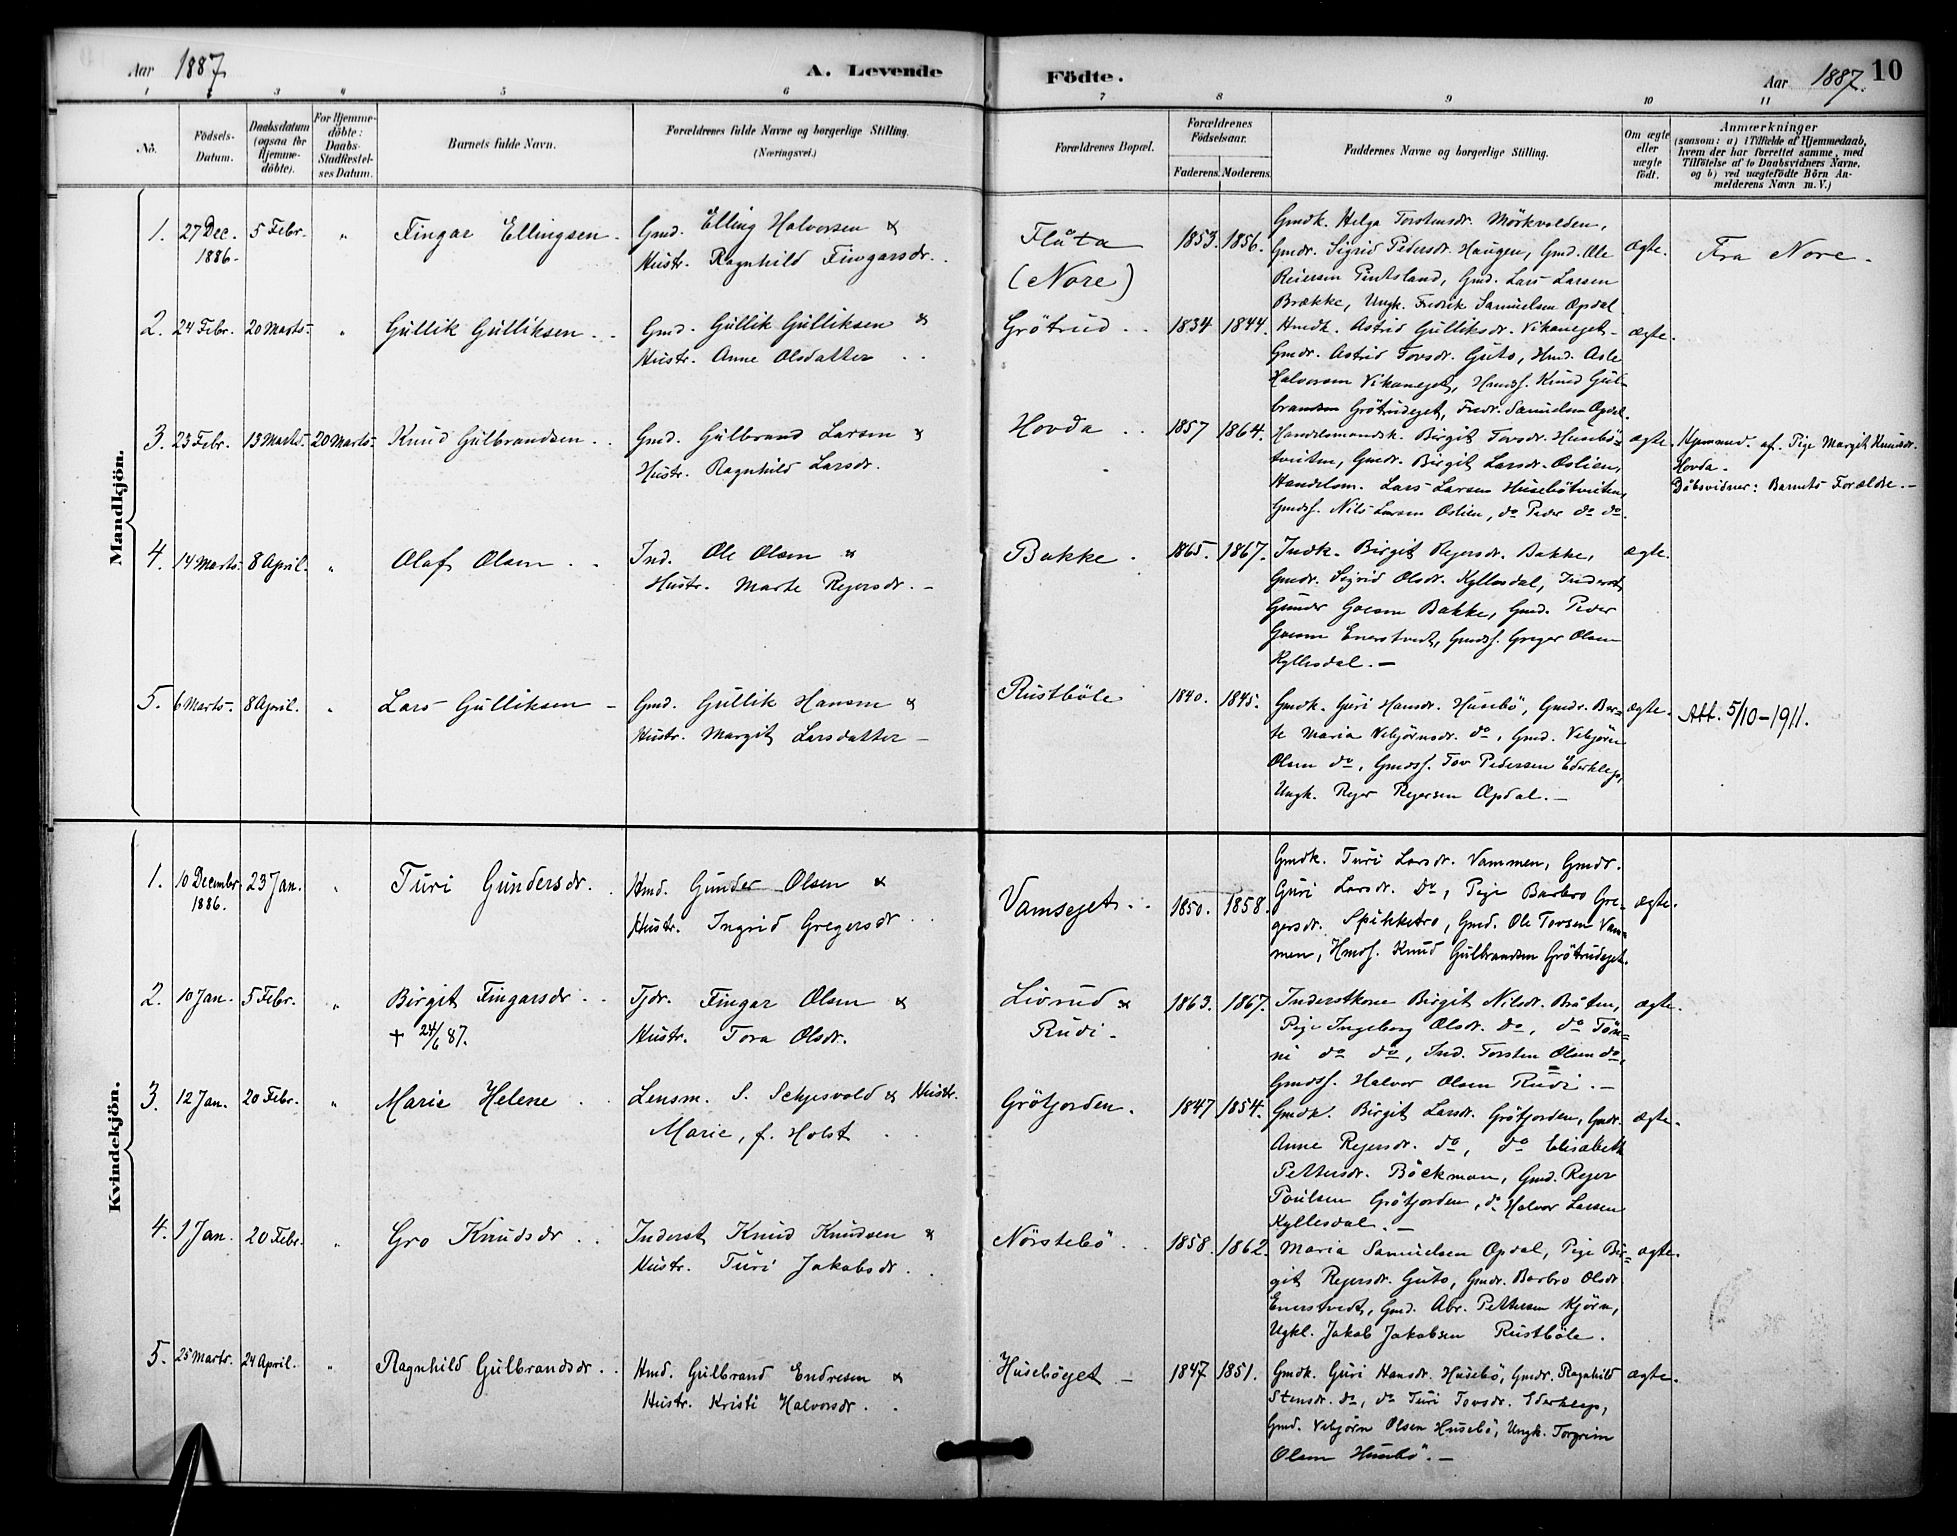 Aar 1887
A. Levende Födte.
Aar 1887. 10
1 2 3 4 5 6 7 8 9 10 11
No.
Födsels-Datum.
Daabsdatum (ogsaa for Hjemme-döbte).
For Hjemme-döbte: Daabs-Stadfæstel-ses Datum.
Barnets fulde Navn.
Forældrenes fulde Navne og borgerlige Stilling. (Næringsvei.)
Forældrenes Bopæl.
Forældrenes Födselsaar.
Faderens. Moderens.
Faddernes Navne og borgerlige Stilling.
Om ægte eller uægte födt.
Anmærkninger
(saasom: a) i Tilfælde af Hjemmedaab,
hvem der har forrettet samme, med
Tilföielse af to Daabsvidners Navne,
og b) ved uægtefödte Börn An-
melderens Navn m. V.)
Mandkjön.
1. 27 Dec. 1886. 5 Febr. " Fingar Ellingsen.
Gmd. Elling Halvorsen &
Hustr. Ragnhild Fingarsdr.
Flåta
(Nore)
1853. 1856.
Gmdk. Helga Torstensdr. Mörkvolden,
Gmdr. Sigrid Pedersdr. Haugen, Gmd. Ole
Reiersen Pintsland, Gmd. Lars Larsen
Brække, Ungk. Fredrik Samuelsen Opdal
ægte. Fra Nore.
2. 24 Febr. 20 Marts " Gullik Gulliksen
Gmd. Gullik Gulliksen &
Hustr. Anne Olsdatter
Grötrud
1834 1844.
Hmdk. Astrid Gulliksdr. Vikaneget
Gmdr. Astrid Tovsdr. Guto, Hmd. Asle
Halvorsen Vikaneget, Hmdsf. Knud Gul-
brandsen Grötrudeget, Fredr. Samuelsen Opdal.
ægte.
3. 23 Febr. 13 Marts 20 Marts Knud Gulbrandsen
Gmd. Gulbrand Larsen &
Hustr. Ragnhild Larsdr.
Hovda
1857 1864.
Handelsmandsk. Birgit Tovsdr. Husebö-
tveiten, Gmdr. Birgit Larsdr. Oslien,
Handelsm. Lars Larsen Husebötveiten,
Gmdsf. Nils Larsen Oslien, do Peder do do
ægte.
Hjemmed. af Pige Margit Knudsdr.
Hovda.
Dåbsvidner: Barnets Forældre.
4. 14 Marts 8 April. " Olaf Olsen
Ind. Ole Olsen &
Hustr. Marte Reiersdr.
Bakke
1865. 1867.
Indk. Birgit Reiersdr. Bakke,
Gmdr. Sigrid Olsdr. Kyllesdal, Inderst
Gunder Goesen Bakke, Gmd. Peder
Goesen Enerstvedt, Gmdsf. Greger Olsen
Kyllesdal.
ægte.
5. 6 Marts 8 April. " Lars Gulliksen
Gmd. Gullik Hansen &
Hustr. Margit Larsdatter
Rustböle
1840. 1845.
Gmdk. Guri Hansdr. Husebö, Gmdr. Ber-
te Maria Vebjørnsdr. do, Gmd. Vebjørn
Olsen do, Gmdsf. Tov Pedersen Ederklep,
Ungk. Reier Reiersen Opdal.
ægte. Att. 5/10-1911.
Kvindekjön.
1. 10 December 1886. 23 Jan. " Turi Gundersdr.
Hmd. Gunder Olsen &
Hustr. Ingrid Gregersdr
Vamseget
1850. 1858.
Gmdk. Turi Larsdr. Vammen, Gmdr.
Guri Larsdr. do, Pige Barbro Gre-
gersdr. Spikketro, Gmd. Ole Tovsen Vam-
men, Hmdsf. Knud Gulbrandsen Grötrudeget.
ægte.
2. 10 Jan. 5 Febr. " Birgit Fingarsdr
+ 24/6 87.
Tjdr. Fingar Olsen &
Hustr. Tora Olsdr.
Livrud &
Rudi.
1863. 1867.
Inderstkone Birgit Nilsdr. Bråten,
Pige Ingeborg Olsdr. do, do Tön-
ne do do, Ind. Torsten Olsen do,
Gmdsf. Halvor Olsen Rudi.
ægte.
3. 12 Jan. 20 Febr. " Marie Helene
Lensm. S. Schjesvold & Hustr.
Marie, f. Holst
Grötjorden.
1847 1854.
Gmdk. Birgit Larsdr. Grötjorden, Gmdr.
Anne Reiersdr. do, do Elisabeth
Pettersdr. Böckman, Gmd. Reier
Poulsen Grötjorden, do Halvor Larsen
Kyllesdal.
ægte.
4. 1 Jan. 20 Febr. " Gro Knudsdr
Inderst Knud Knudsen &
Hustr. Turi Jakobsdr.
Nörstebö
1858 1862.
Maria Samuelsen Opdal, Pige Bir-
git Reiersdr. Guto, Gmdr. Barbro Olsdr.
Enerstvedt, Gmd. Abr. Pettersen Kjörn,
Ugkl. Jakob Jakobsen Rustböle.
ægte.
5. 25 Marts. 24 April. " Ragnhild Gulbrandsdr.
Hmd. Gulbrand Endresen &
Hustr. Kristi Halvorsdr.
Huseböget
1847 1851.
Gmdk. Guri Hansdr. Husebö, Gmdr. Ragnhild
Stensdr. do, do Turi Tovsdr. Ederklep,
Gmd. Vebjørn Olsen Husebö, Ungk. Torgrim
Olsen Husebö.
ægte.